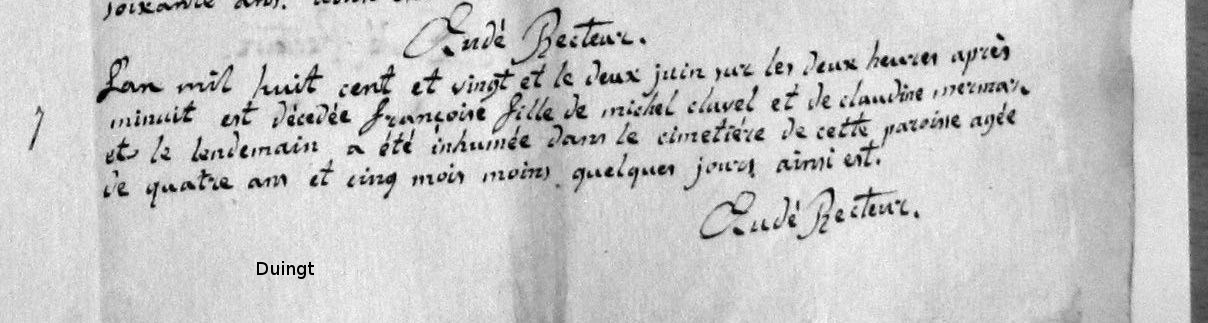 soixante ans.
Eudé Recteur.
Lan mil huit cent et vingt et le deux juin sur les deux heures après
7 minuit est décedée françoise fille de michel clavel et de claudine merman
et le lendemain a été inhumée dans le cimetiére de cette paroisse agée
de quatre ans et cinq mois moins quelques jours ainsi est.
Eudé Recteur.
Duingt